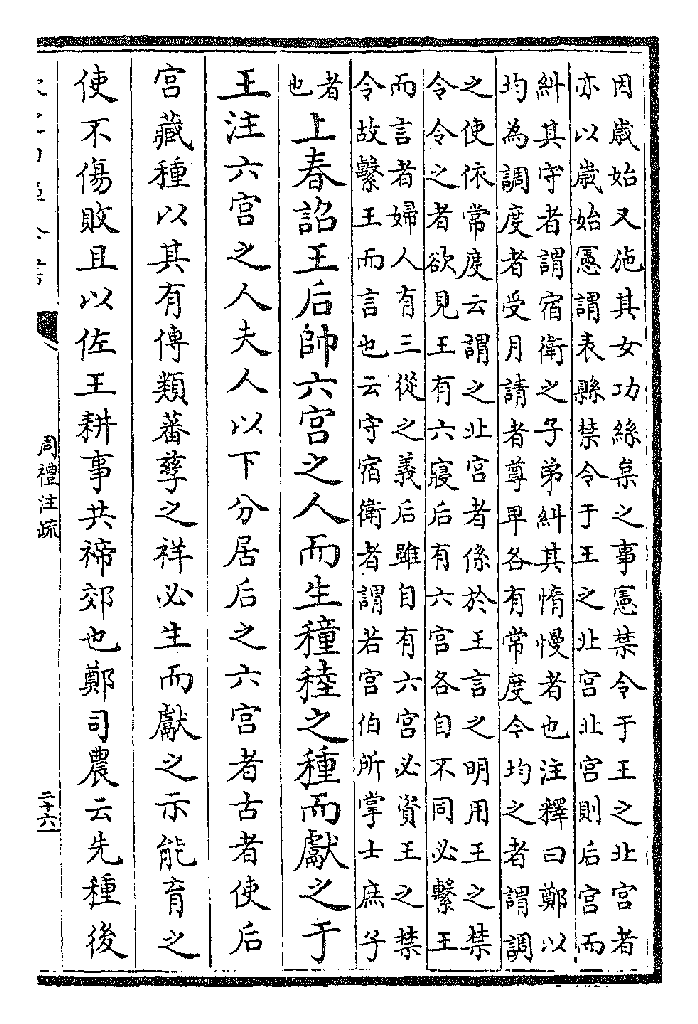 因歲始又施其女功絲枲之事憲禁令于王之北宮者
亦以歲始憲謂表縣禁令于王之北宮北宮則后宮而
糾其守者謂宿衛之子弟糾其惰慢者也注釋曰鄭以
均為調度者受月請者尊卑各有常度令均之者謂調
之使依常度云謂之北宮者係於王言之明用王之禁
令令之者欲見王有六寢后有六宮各自不同必繫王
而言者婦人有三從之義后雖自有六宮必資王之禁
令故繫王而言也云守宿衛者謂若宮伯所掌士庶子
者
也
上春詔王后帥六宮之人而生穜稑之種而獻之于
王注六宮之人夫人以下分居后之六宮者古者使后
宮藏種以其有傳類蕃孳之祥必生而獻之示能育之
使不傷敗且以佐王耕事共禘郊也鄭司農云先種後
周禮注疏
二十六